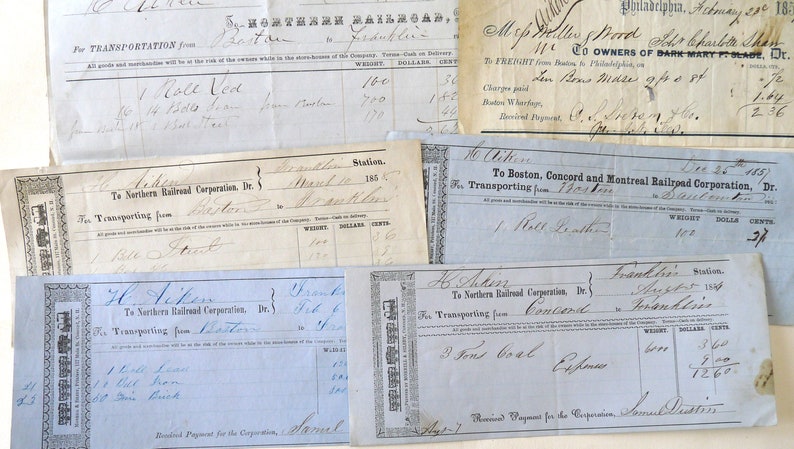 H Aiken
To NORTHERN RAILROAD,
FOR TRANSPORTATION from Boston to Franklin
All goods and merchandise will be at the risk of the owners while in the store-houses of the Company. Terms—Cash on Delivery.
WEIGHT. DOLLARS. CENTS.
1 Roll Led 100 36
16 14 Bdls Iron from Boston 700 1 82
170 44
2 62
Philadelphia, February 23d 185
Mess Miller & Wood
To OWNERS OF BARK MARY P. SLADE, Dr.
To FREIGHT from Boston to Philadelphia, on
DOLLS. CTS.
Ten Boxs Mdse 9 ft @ 8¢ 72
Charges paid
Boston Wharfage, 1.64
Received Payment, 2 36
H. Aiken Franklin Station.
To Northern Railroad Corporation, Dr. 185
For Transporting from Boston to Franklin
All goods and merchandise will be at the risk of the owners while in the store-houses of the Company. Terms—Cash on delivery.
WEIGHT. DOLLARS. CENTS.
1 Bdl Steel 100 36
H Aiken Dec 25th 1857
To Boston, Concord and Montreal Railroad Corporation, Dr.
For Transporting from Boston to
All goods and merchandise will be at the risk of the owners while in the store-houses of the Company. Terms—Cash on delivery.
WEIGHT. DOLLS CENTS.
1 Roll Leather 100 37
H. Aiken
To Northern Railroad Corporation, Dr. Feb 6
For Transporting from Boston to
All goods and merchandise will be at the risk of the owners while in the store-houses
WEIGHT
1 Roll Lead
Bdl Iron
50 Fire Brick
Received Payment for the Corporation, Samuel
H. Aiken Franklin Station.
To Northern Railroad Corporation, Dr. August 185
For Transporting from Concord to Franklin
All goods and merchandise will be at the risk of the owners while in the store-houses of the Company. Terms—Cash on delivery.
WEIGHT. DOLLARS. CENTS.
3 Tons Coal 6000 3 60
Expenses 9 00
12 60
Received Payment for the Corporation, Samuel Dustin